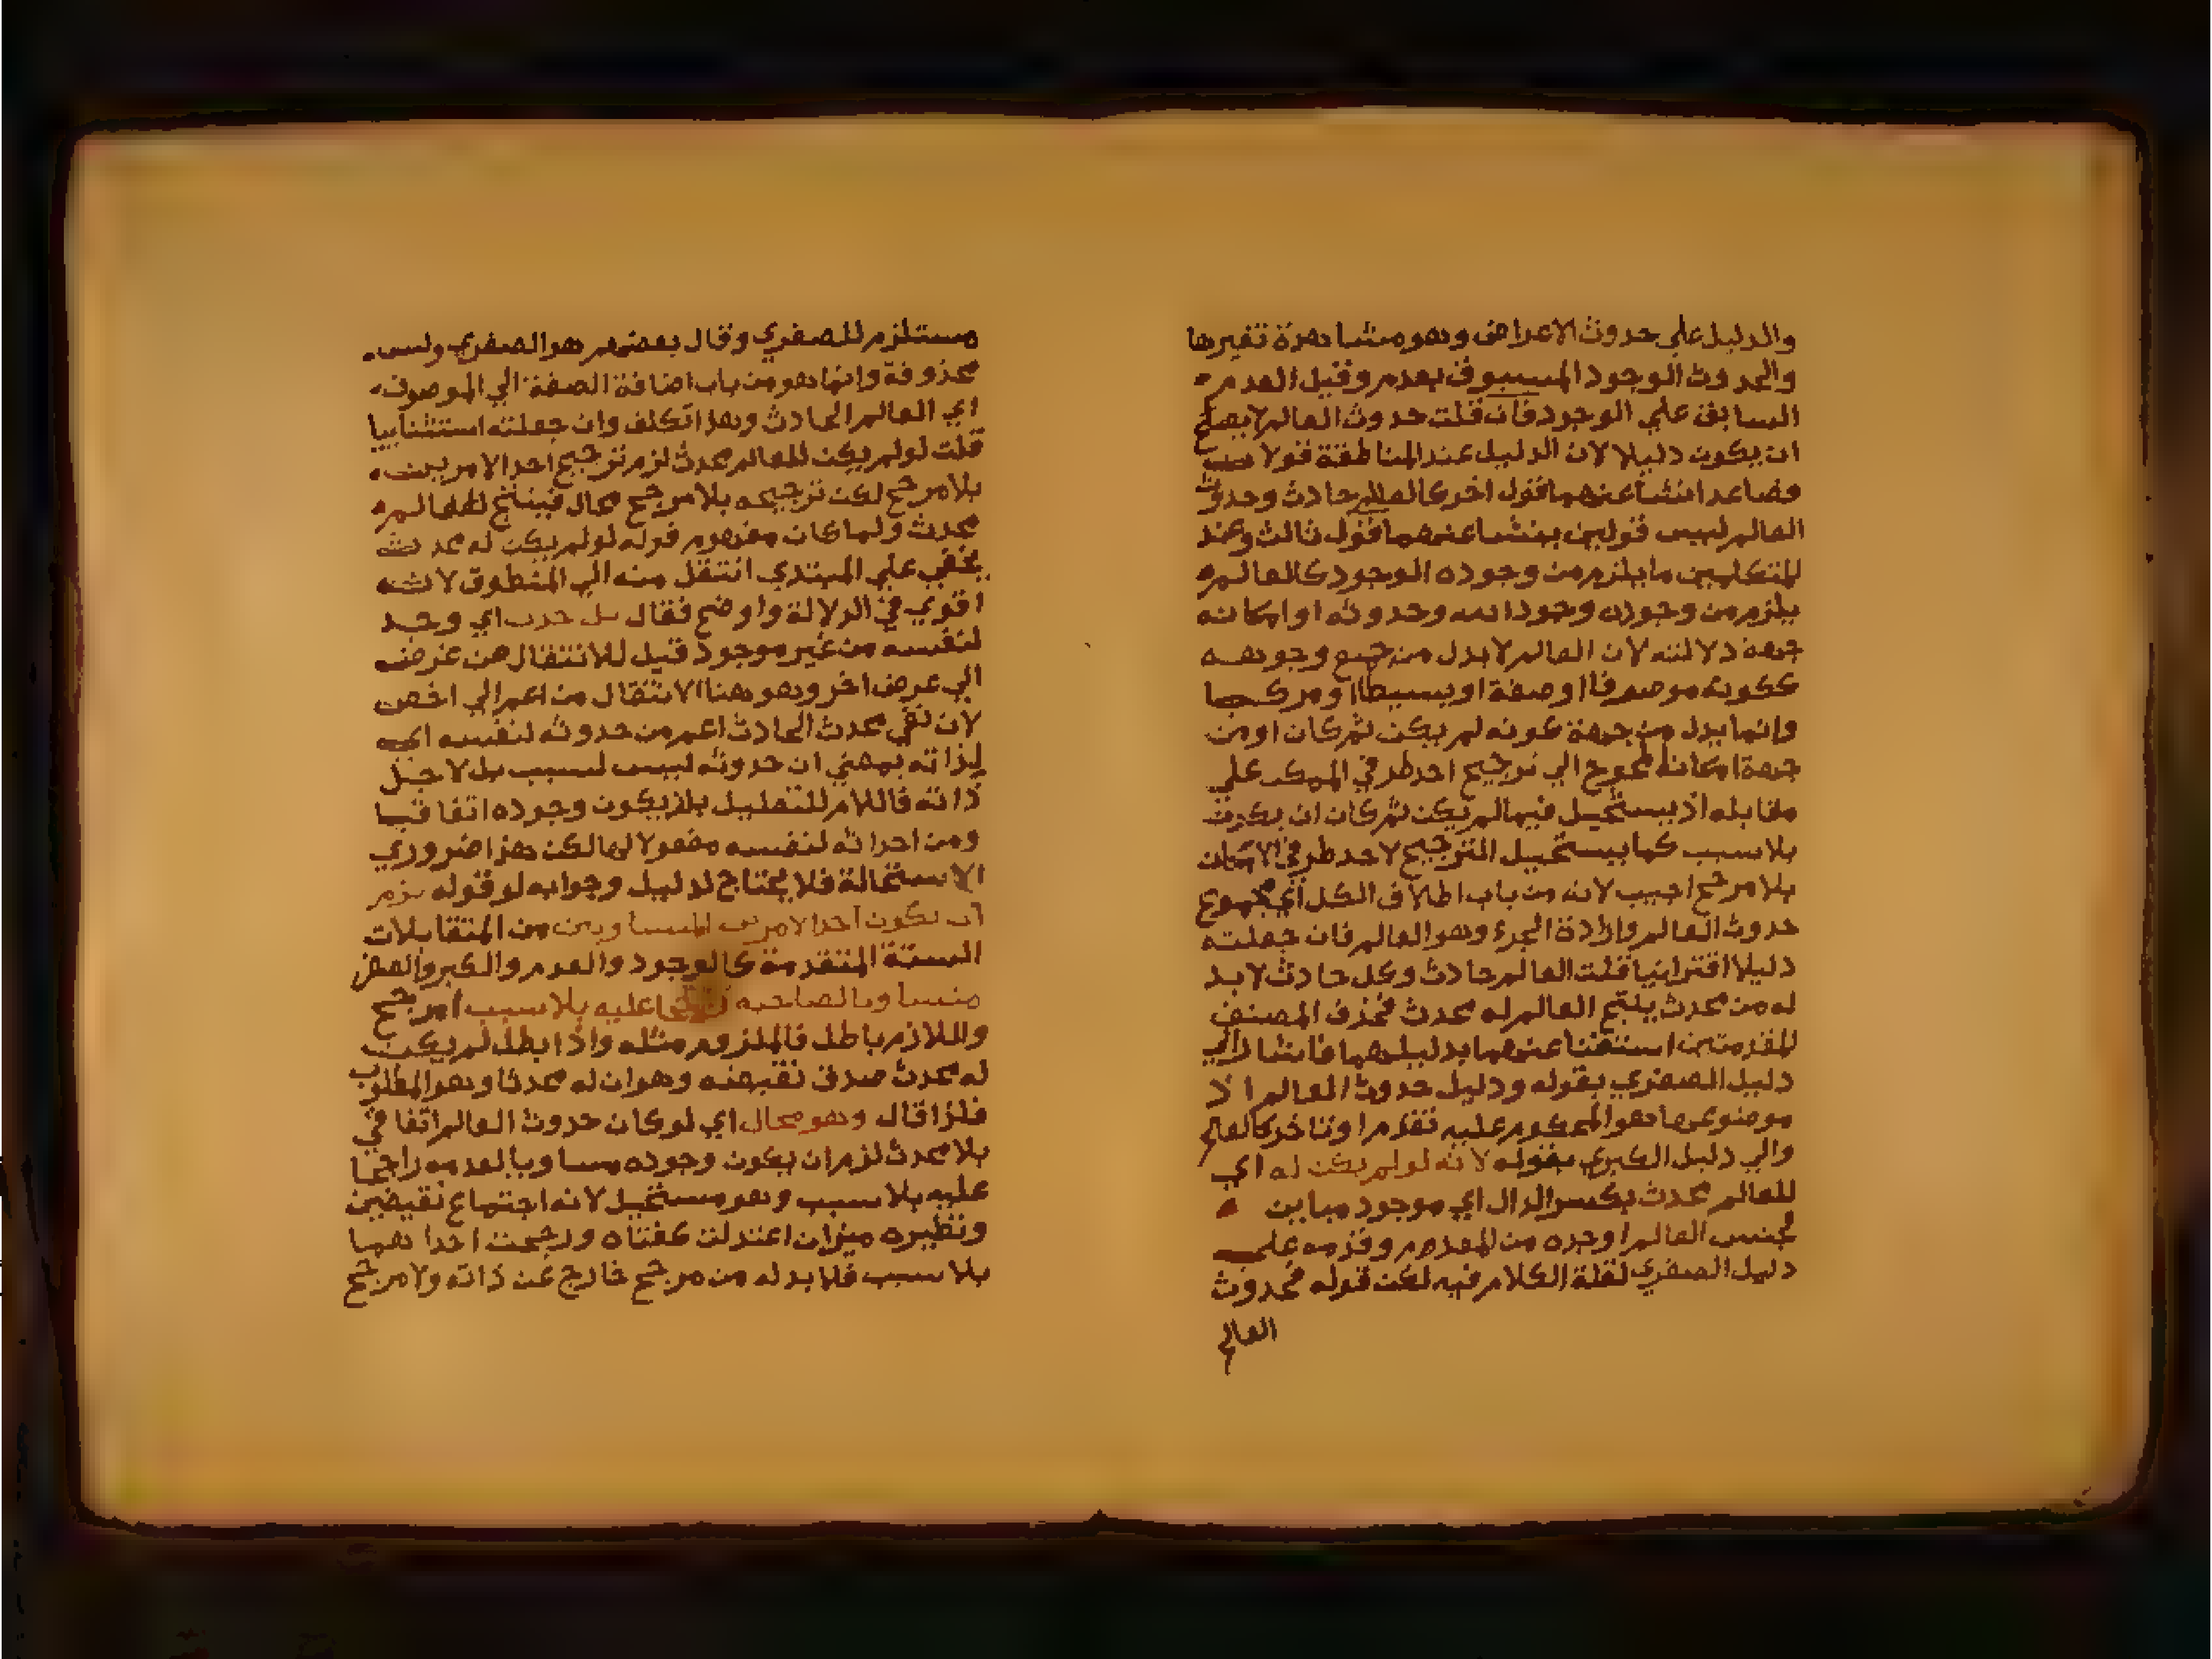 والدليل علي حدوث الاعراض وهو مشاهدة تغيرها
والحدوث الوجود المسبوق بعدم وقيل العدم
السابق علي الوجود فان قلت حدوث العالم لا يصلح
ان يكون دليلا لان الدليل عند المناطقة قولان
فصاعدا ينشأ عنهما قول اخر كالعالم حادث وحدوث
العالم ليس قولين ينشا عنهما قول ثالث وعند
المتكلمين ما يلزم من وجوده الوجود كالعالم
يلزم من وجوده وجود الله وحدوثه او امكانه
جهة دلالته لان العالم لا يدل من جميع وجوهه
ككونه موصوفا او صفة او بسيطا او مركبا
وانما يدل من جهة كونه لم يكن ثم كان او من
جهة امكانه المحوج الي ترجيح احد طرفي الممكن علي
مقابله اذ يستحيل فيما لم يكن ثم كان ان يكون
بلا سبب كما يستحيل الترجيح لاحد طرفي الامكان
بلا مرجح اجيب لانه من باب اطلاق الكل اي مجموع
حدوث العالم وارادة الجزء وهو العالم فان جعلته
دليلا اقترانيا قلت العالم حادث وكل حادث لا بد
له من محدث ينتج العالم له محدث فحذف المصنف
المقدمتين استغنا عنهما بدليلهما فاشار الي
دليل الصغري بقوله ودليل حدوث العالم اذ
موضوعها هو المحكوم عليه تقدم او تاخر كالعالم
والي دليل الكبري بقوله لانه لو لم يكن له اي
للعالم محدث بكسر الدال اي موجود مباين
لجنس العالم اوجده من العدم وقدمه علي
دليل الصغري لقلة الكلام فيه لكن قوله فحدوث
العالم
مستلزم للصغري وقال بعضهم هو الصغري وليس
محذوفة وانما هو من باب اضافة الصفة الي الموصوف
اي العالم الحادث وهذا تكلف وان جعلته استثنايبا
قلت لو لم يكن للعالم محدث لزم ترجيح احد الامرين
بلا مرجح لكن ترجيحه بلا مرجح محال فينتج للعالم
محدث ولما كان مفهوم قوله لو لم يكن له محدث
يخفي علي المبتدي انتقل منه الي المنطوق لانه
اقوي في الدلالة واوضح فقال بل حدث اي وجد
لنفسه من غير موجود قيل للانتقال من غرض
الي غرض اخر وهو هنا الانتقال من اعم الي اخص
لان نفي محدث الحادث اعم من حدوثه لنفسه اي
لذاته بمعني ان حدوثه ليس لسبب بل لاجل
ذاته فاللام للتعليل بان يكون وجوده اتفاقيا
ومن احداثه لنفسه مفعولا لها لكن هذا ضروري
الاستحالة فلا يحتاج لدليل وجوابه لو قوله لزم
ان يكون احد الامرين المتساويين من المتقابلات
الستة المتقدمة كالوجود والعدم والكبر والصغر
متساويا لصاحبه راجحا عليه بلا سبب امرجح
واللازم باطل فالملزوم مثله واذا بطل لم يكن
له محدث صدق نقيضه وهو ان له محدثا وهو المطلوب
فلذا قال وهو محال اي لو كان حدوث العالم اتفاقي
بلا محدث لزم ان يكون وجوده مساويا لعدمه راجحا
عليه بلا سبب وهو مستحيل لانه اجتماع نقيضين
ونظيره ميزان اعتدلت كفتاه ورجحت احداهما
بلا سبب فلا بد له من مرجح خارج عن ذاته ولا مرجح